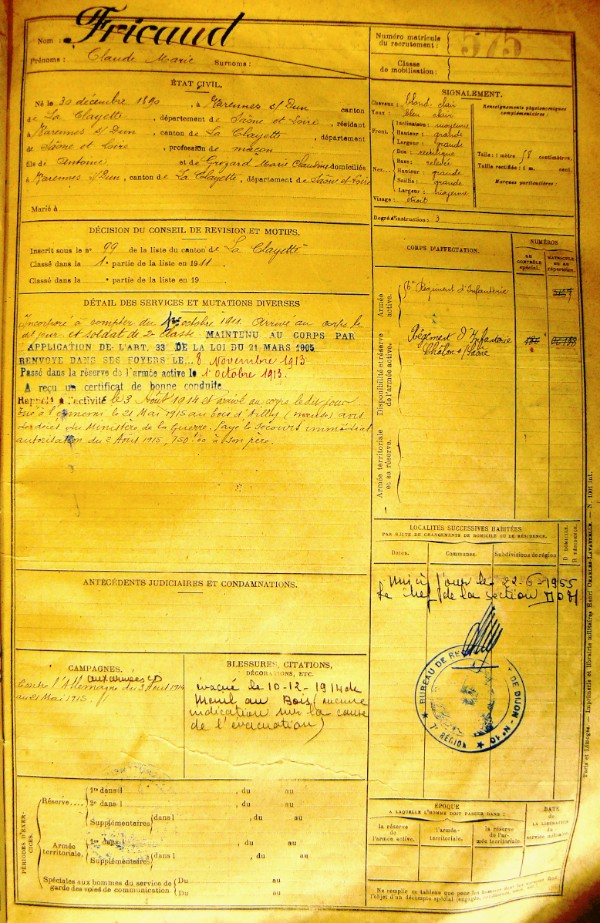 Nom : Fricaud
Prénoms : Claude Marie Surnoms :
Numéro matricule du recrutement : 575
Classe de mobilisation :
ÉTAT CIVIL.
Né le 30 décembre 1890, à Varennes s/Dun canton
de La Clayette, département de Saône et Loire, résidant
à Varennes s/Dun, canton de La Clayette, département
de Saône et Loire, profession de maçon
fils de Antoine et de Marie Claudine domiciliés
à Varennes s/Dun, canton de La Clayette, département de Saône et Loire
Marié à
SIGNALEMENT.
Cheveux : blond clair
Yeux : bleu clair
Front. Inclinaison : moyenne
Hauteur : grande
Largeur : grande
Nez. Dos : rectiligne
Base : relevée
Hauteur : grande
Saillie : grande
Largeur : moyenne
Visage :
Renseignements physionomiques complémentaires :
Taille : 1 mètre 58 centimètres.
Taille rectifiée : 1 m. cent.
Marques particulières :
Degré d'instruction : 3
DÉCISION DU CONSEIL DE REVISION ET MOTIFS.
Inscrit sous le n° 99 de la liste du canton de La Clayette
Classé dans la 1e partie de la liste en 1911
Classé dans la e partie de la liste en 19
DÉTAIL DES SERVICES ET MUTATIONS DIVERSES
Incorporé à compter du 1er octobre 1911. Arrivé au corps le
dit jour et soldat de 2e classe MAINTENU AU CORPS PAR
APPLICATION DE L'ART. 33 DE LA LOI DU 21 MARS 1905
RENVOYÉ DANS SES FOYERS LE 8 Novembre 1913
Passé dans la réserve de l'armée active le 1 octobre 1913.
A reçu un certificat de bonne conduite.
Rappelé à l'activité le 3 Août 1914 et arrivé au corps le dit jour
Tué à l'ennemi le 21 Mai 1915 au bois d'Ailly (meuse) avis
du Ministère de la Guerre. Payé le secours immédiat
autorisation du 2 Août 1915, 150f à son père.
CORPS D'AFFECTATION.
NUMÉROS
au contrôle spécial.
matricule ou au répertoire.
Armée active.
Régiment d'Infanterie
Disponibilité et réserve de l'armée active.
Régiment d'Infanterie
Chalon s/ Saône
Armée territoriale et sa réserve.
LOCALITÉS SUCCESSIVES HABITÉES
PAR SUITE DE CHANGEMENTS DE DOMICILE OU DE RÉSIDENCE.
Dates.
Communes.
Subdivisions de région
D domicile.
R résidence.
Mis à jour le 22-6-1955
Le chef de la section
BUREAU DE DE DIJON - N° 10
7e RÉGION
ANTÉCÉDENTS JUDICIAIRES ET CONDAMNATIONS.
CAMPAGNES.
Contre l'Allemagne du 3 Août 1914
au 21 Mai 1915.
BLESSURES, CITATIONS,
DÉCORATIONS, ETC.
évacué le 10-12-1914 de
au Bois (aucune
indication sur la cause
de l'évacuation)
PÉRIODES D'EXERCICES.
Réserve
1re dans l , du au
2e dans l , du au
Supplémentaires dans l , du au
Armée territoriale.
1re dans l , du au
Supplémentaires dans l , du au
Spéciales aux hommes du service de garde des voies de communication Du au
Du au
ÉPOQUE
A LAQUELLE L'HOMME DOIT PASSER DANS :
la réserve de l'armée active.
l'armée territoriale.
la réserve de l'armée territoriale.
DATE DE LA LIBÉRATION DU SERVICE MILITAIRE.
Paris et Limoges. — Imprimerie et librairie militaires Henri CHARLES-LAVAUZELLE.